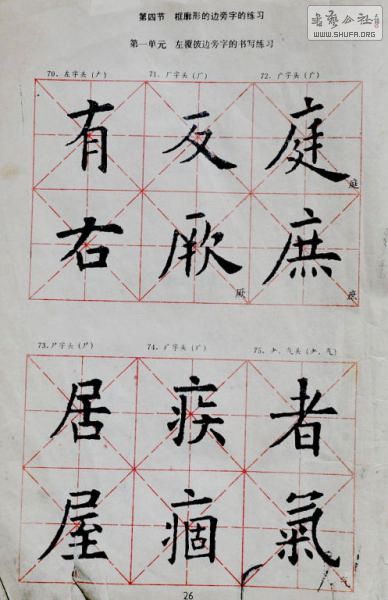 书艺公社
WWW.SHUFA.ORG
第四节 框廓形的边旁字的练习
第一单元 左覆披边旁字的书写练习
70、左字头(𠂇) 71、厂字头(厂) 72、广字头(广)
有 反 庭
庭
右 厥 庶
厥 庶
73、尸字头(尸) 74、疒字头(疒) 75、耂、气头(耂、气)
居 疾 者
屋 痼 氣
26